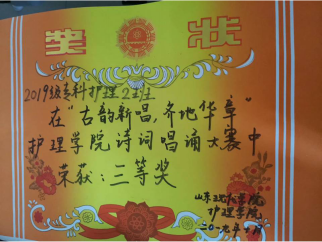 奖 状
2019级专科护理2班
在“古韵新唱,齐地华章”
护理学院诗词唱诵大赛中
荣获:三等奖
山东
护理学院
二〇一九年